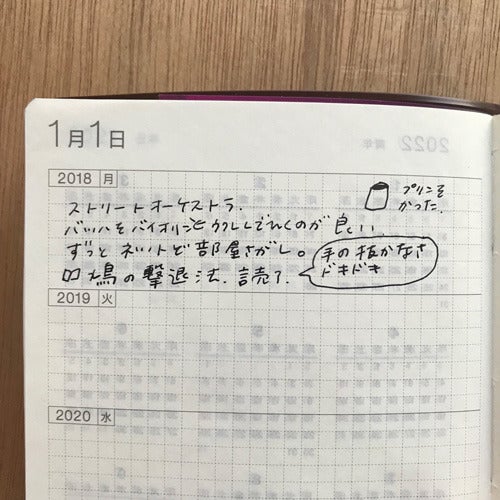 1月1日
2018 月
ストリートオーケストラ.
バッハをバイオリンと ウクレレでひくのが 良い
ずっと ネットで 部屋さがし。
四 鳥の撃退法. 読了.
手の抜かなさ
ドキドキ
プリンを
かった.
2019 火
2020 水
2022